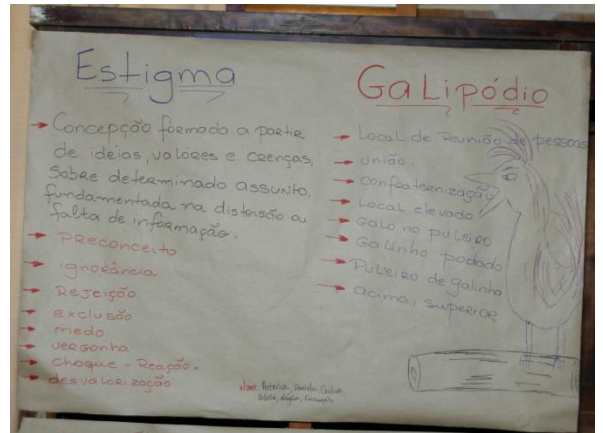 Estigma
→ Concepção formada a partir
de ideias, valores e crenças,
sobre determinado assunto,
fundamentada na distorsão ou
falta de informação.
→ Preconceito
→ ignorância
→ Rejeição
→ exclusão
→ medo
→ vergonha
→ choque - Reação.
→ desvalorização
GaLipódio
→ Local de Reunião de pessoas
→ união.
→ confraternização
→ Local elevado
→ Galo no puleiro
→ Galinho podado
→ Puleiro de galinha
→ acima, superior